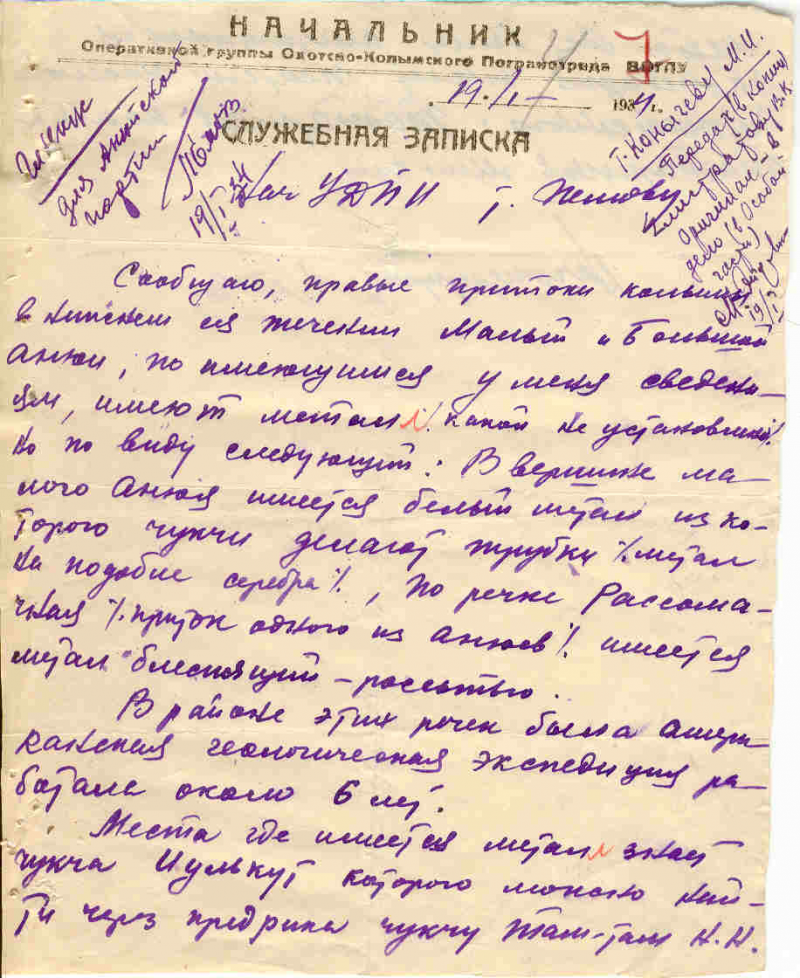 НАЧАЛЬНИК
Оперативной группы Охотско-Колымского Погранотряда ВОГПУ
19.I- 1934.
СЛУЖЕБНАЯ ЗАПИСКА
для Анюйской
партии
19/I 34
т. Конычеву М.И.
Передать в копии
Оригинал - в
дело (в Особой
части)
19/I
Нач УДПИ т.
Сообщаю, правые притоки колымы
в нижнем ея течении Малый и Большой
анюи, по имеющимся у меня сведени-
ям, имеют металл %. какой не установлено %.
но по виду следующий: В вершине ма-
лого Анюя имеется белый метал из ко-
торого чукчи делают трубки % метал
на подобие серебра %, по речке Рассома-
чная %. приток одного из анюев %. имеется
метал блестящий - россыпью.
В районе этих речек была амери
канская геологическая экспедиция ра-
ботала около 6 лет.
Места где имеется металл знает
чукча Иулькут которого можно най-
ти через предрика чукчу Там-там Н.Н.